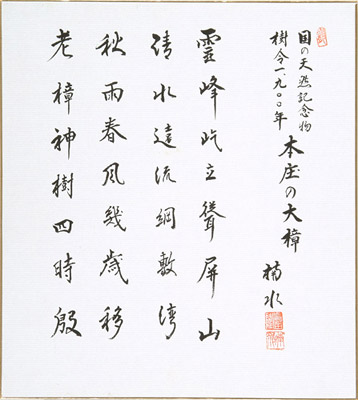 国の天然記念物
樹令一、九〇〇年
本庄の大樟
楠水
霊峰屹立聳屏山
清水遠流綱敷湾
秋雨春風幾歳移
老樟神樹四時殷